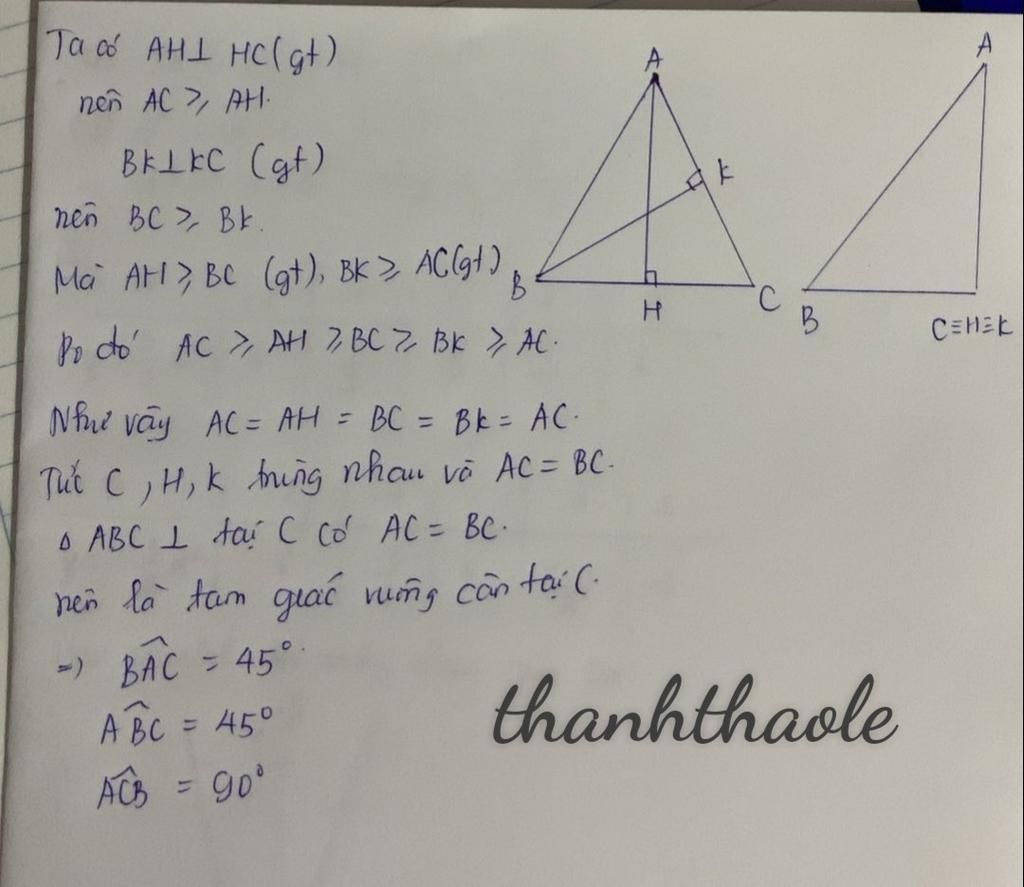 Ta có AH⊥ HC(gt)
nên AC ⩾ AH.
BK⊥KC (gt)
nên BC ⩾ BK.
Mà AH ⩾ BC (gt), BK ⩾ AC(gt)
Do đó AC ⩾ AH ⩾ BC ⩾ BK ⩾ AC.
Như vậy AC = AH = BC = BK = AC.
Tức C, H, K trùng nhau và AC = BC.
Δ ABC ⊥ tại C có AC = BC.
nên là tam giác vuông cân tại C.
=) BAC^ = 45°
ABC^ = 45°
ACB^ = 90°
A
K
B
H
C
A
B
C≡H≡K
thanhthaole